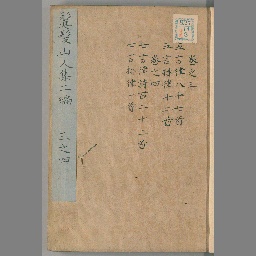 卷之三
五言律八十七首
五言排律十一首
卷之四
七言律詩百二十二首
七言排律一首
山人集二編
三之四